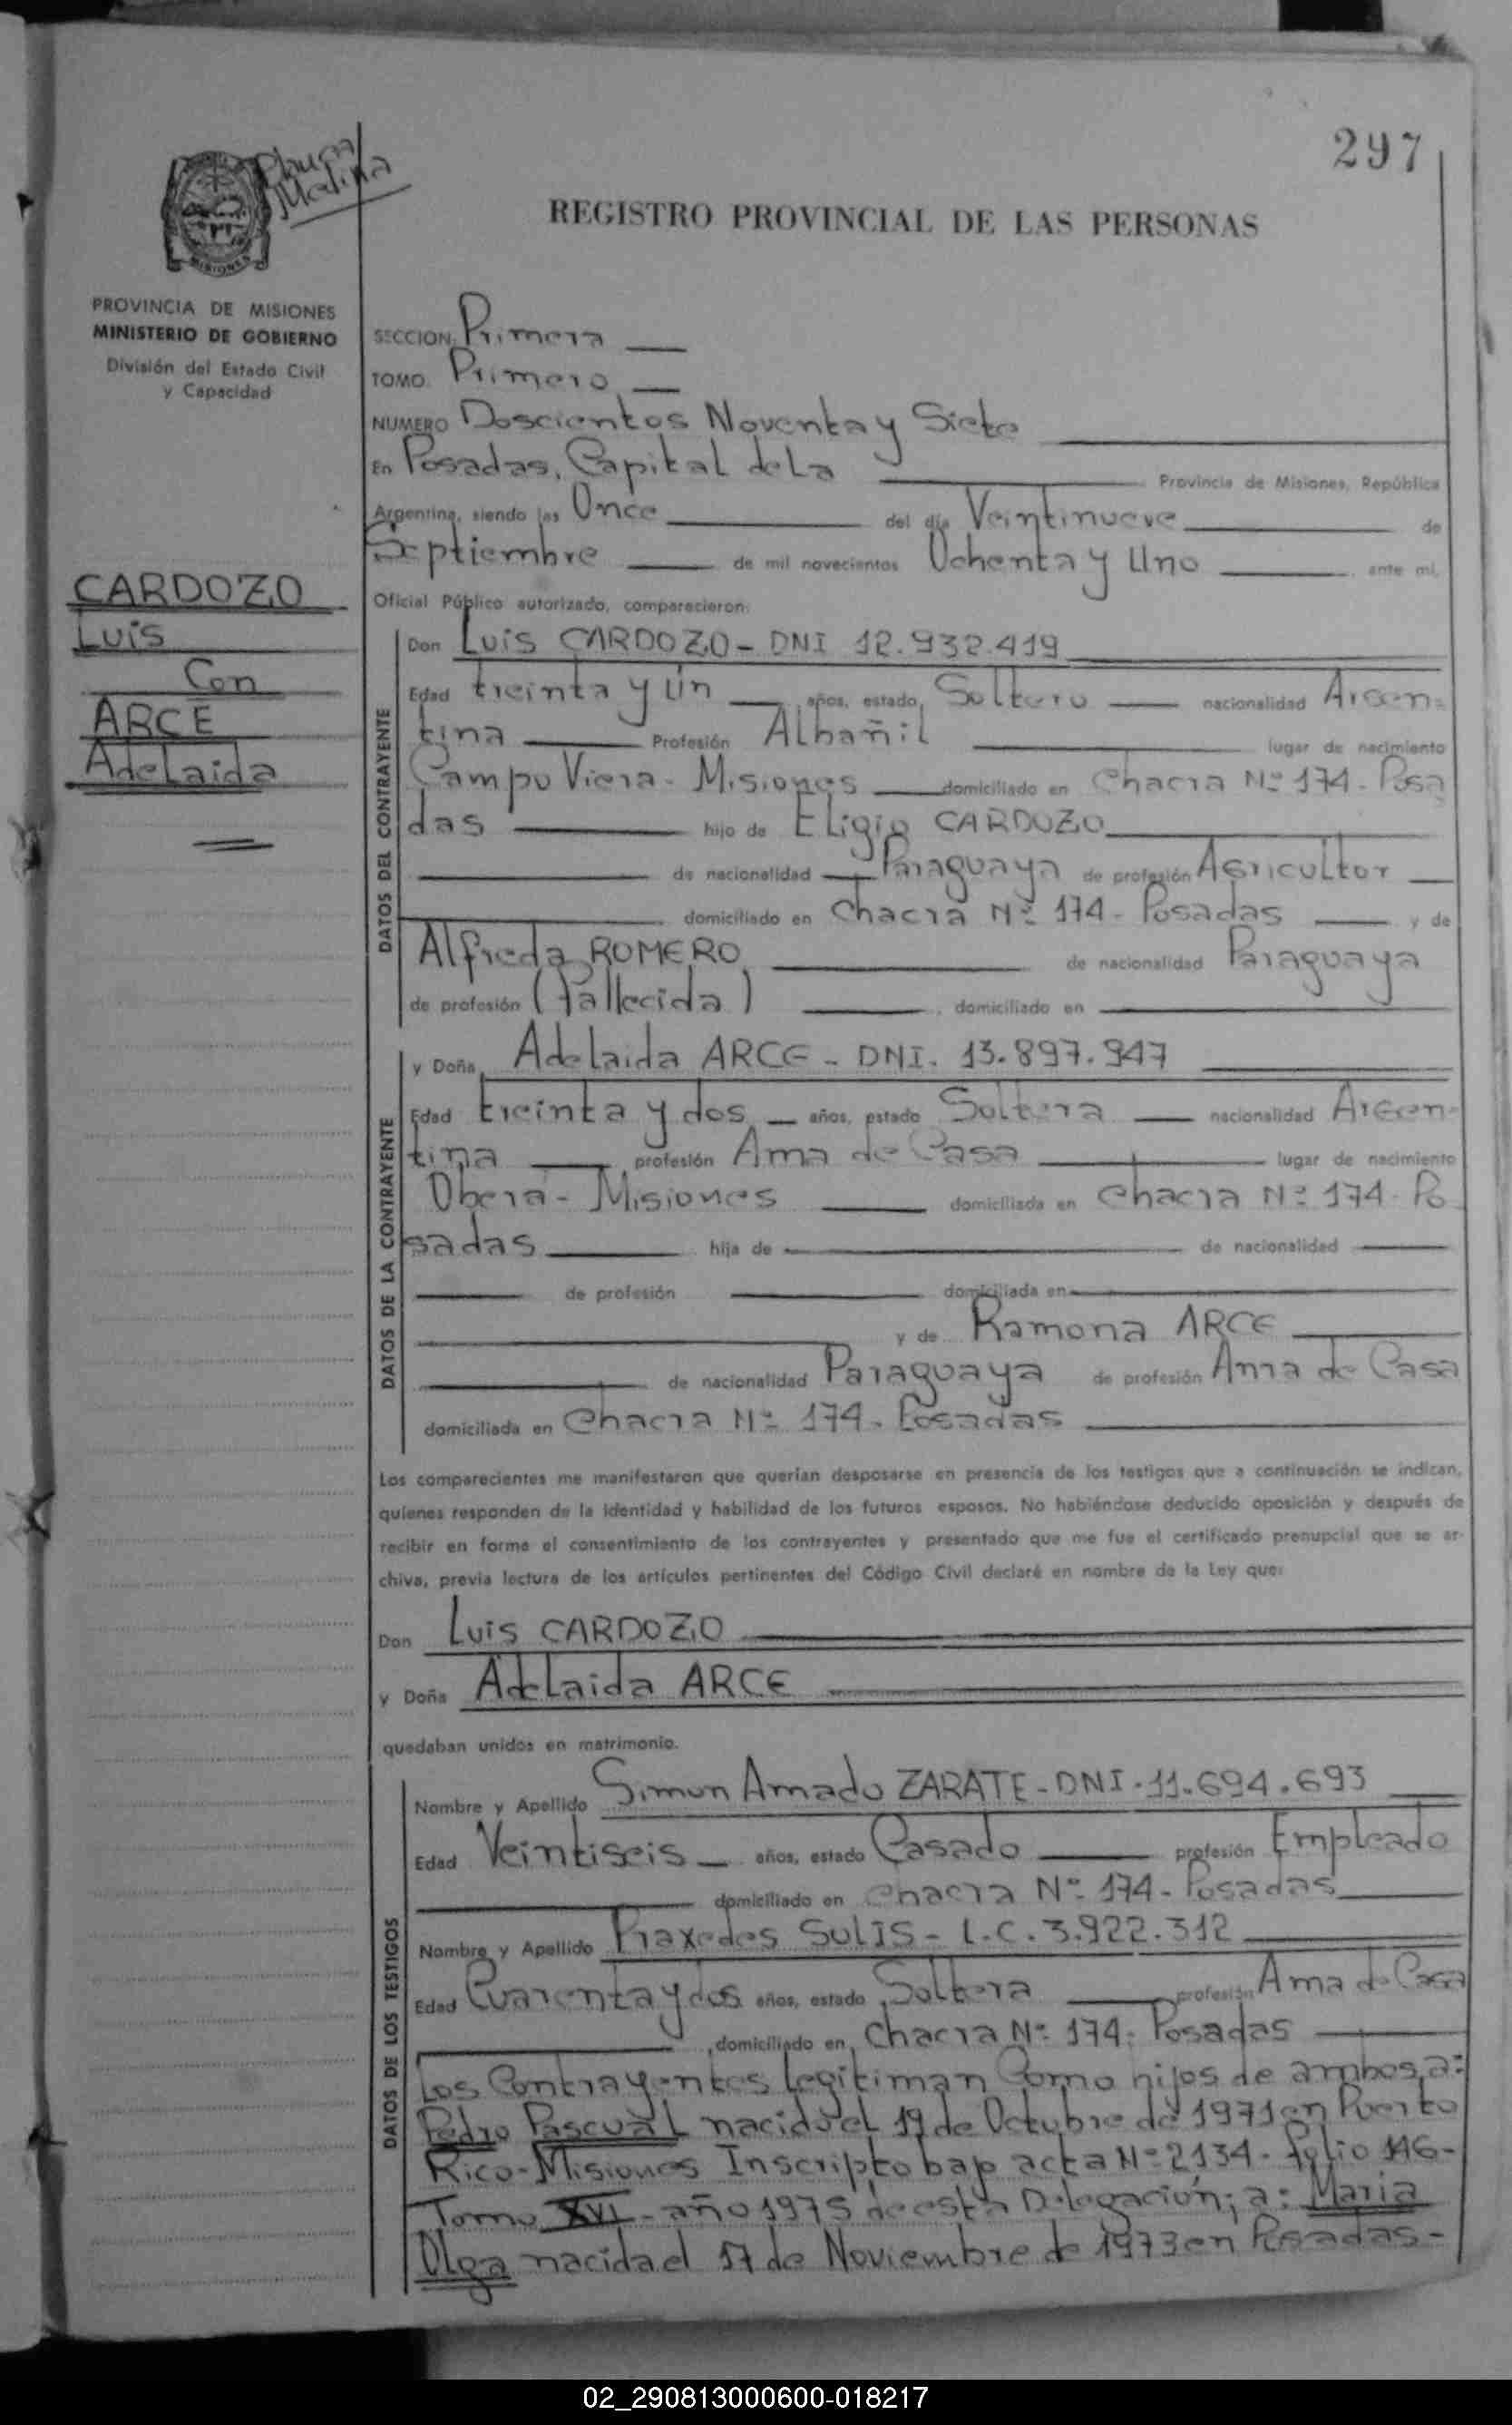 297
Molina
REGISTRO PROVINCIAL DE LAS PERSONAS
MISIONES
PROVINCIA DE MISIONES
MINISTERIO DE GOBIERNO
División del Estado Civil
y Capacidad
SECCION: Primera
TOMO: Primero
NUMERO Doscientos Noventa y Siete
En Posadas, Capital de La Provincia de Misiones, República
Argentina, siendo las Once del día Veintinueve de
Septiembre de mil novecientos Ochenta y Uno ante mí,
Oficial Público autorizado, comparecieron:
CARDOZO
Luis
Con
ARCE
Adelaida
DATOS DEL CONTRAYENTE
Don Luis CARDOZO - DNI 12.932.419
Edad treinta y Un años, estado Soltero nacionalidad Argen-
tina Profesión Albañil lugar de nacimiento
Campo Viera - Misiones domiciliado en Chacra Nº 174 - Posa
das hijo de Eligio CARDOZO
de nacionalidad Paraguaya de profesión Agricultor
domiciliado en Chacra Nº 174 - Posadas y de
Alfreda ROMERO de nacionalidad Paraguaya
de profesión (fallecida), domiciliado en
DATOS DE LA CONTRAYENTE
y Doña Adelaida ARCE - DNI. 13.897.947
Edad treinta y dos años, estado Soltera nacionalidad Argen-
tina, profesión Ama de Casa lugar de nacimiento
Obera - Misiones domiciliada en Chacra Nº 174 - Po
sadas hija de de nacionalidad
de profesión domiciliada en
y de Ramona ARCE
de nacionalidad Paraguaya de profesión Ama de Casa
domiciliada en Chacra Nº 174 - Posadas
Los comparecientes me manifestaron que querían desposarse en presencia de los testigos que a continuación se indican,
quienes responden de la identidad y habilidad de los futuros esposos. No habiéndose deducido oposición y después de
recibir en forma el consentimiento de los contrayentes y presentado que me fue el certificado prenupcial que se ar-
chiva, previa lectura de los artículos pertinentes del Código Civil declaré en nombre de la Ley que:
Don Luis CARDOZO
y Doña Adelaida ARCE
quedaban unidos en matrimonio.
DATOS DE LOS TESTIGOS
Nombre y Apellido Simon Amado ZARATE - DNI - 11.694.693
Edad Veintiseis años, estado Casado profesión Empleado
domiciliado en Chacra Nº 174 - Posadas
Nombre y Apellido Praxedes SOLIS - L.C. 3.922.312
Edad Cuarenta y dos años, estado Soltera profesión Ama de Casa
, domiciliado en Chacra Nº 174 - Posadas
Los Contrayentes Legitiman Como hijos de ambos a:
Pedro Pascual nacido el 19 de Octubre de 1971 en Puerto
Rico - Misiones Inscripto bajo acta Nº 2134 - folio 146 -
Tomo XVI - año 1975 de esta Delegación; a: Maria
Olga nacida el 17 de Noviembre de 1973 en Posadas -
02_290813000600-018217